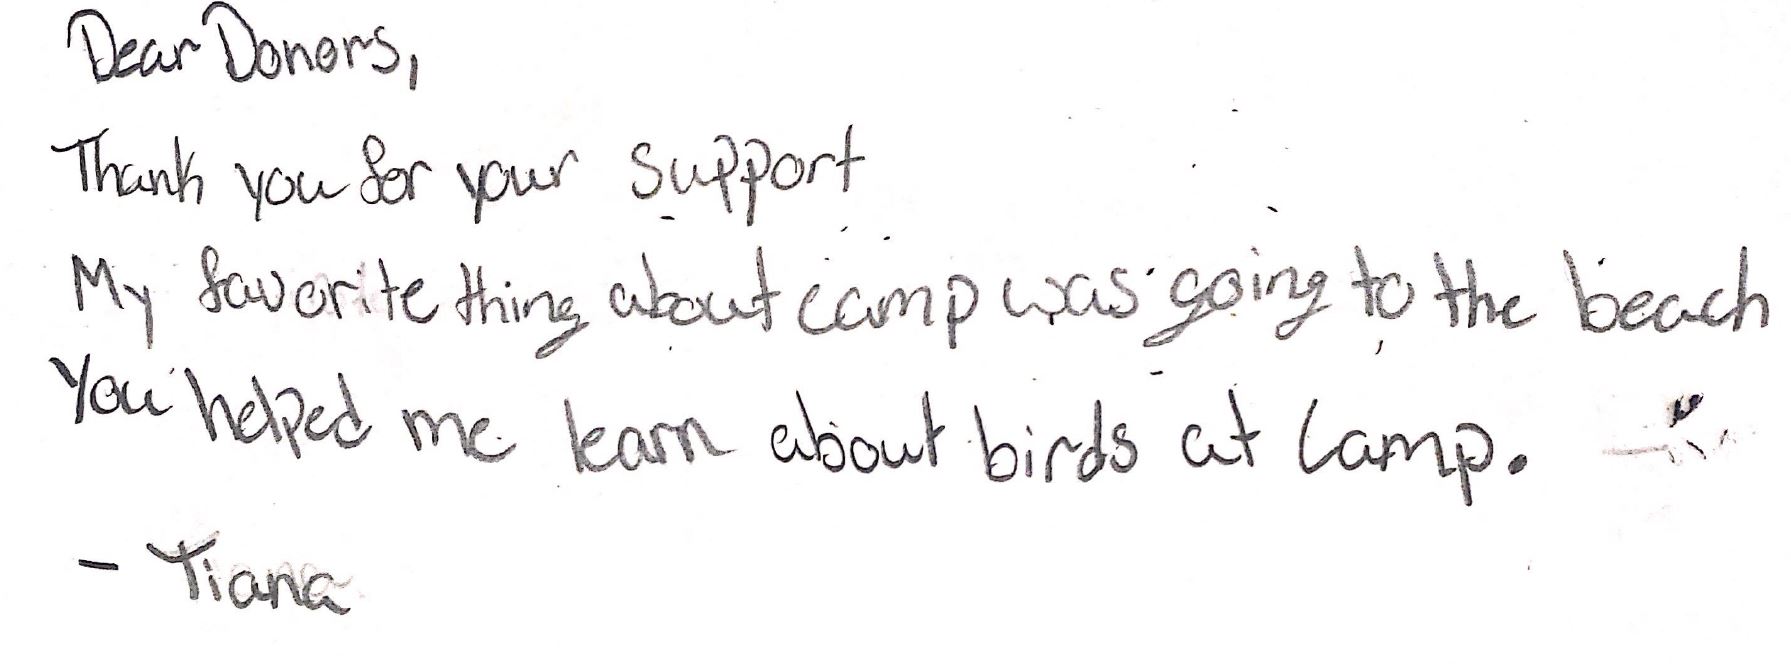 Dear Donors,
Thank you for your support
My favorite thing about camp was going to the beach
You helped me learn about birds at camp.
- Tiana